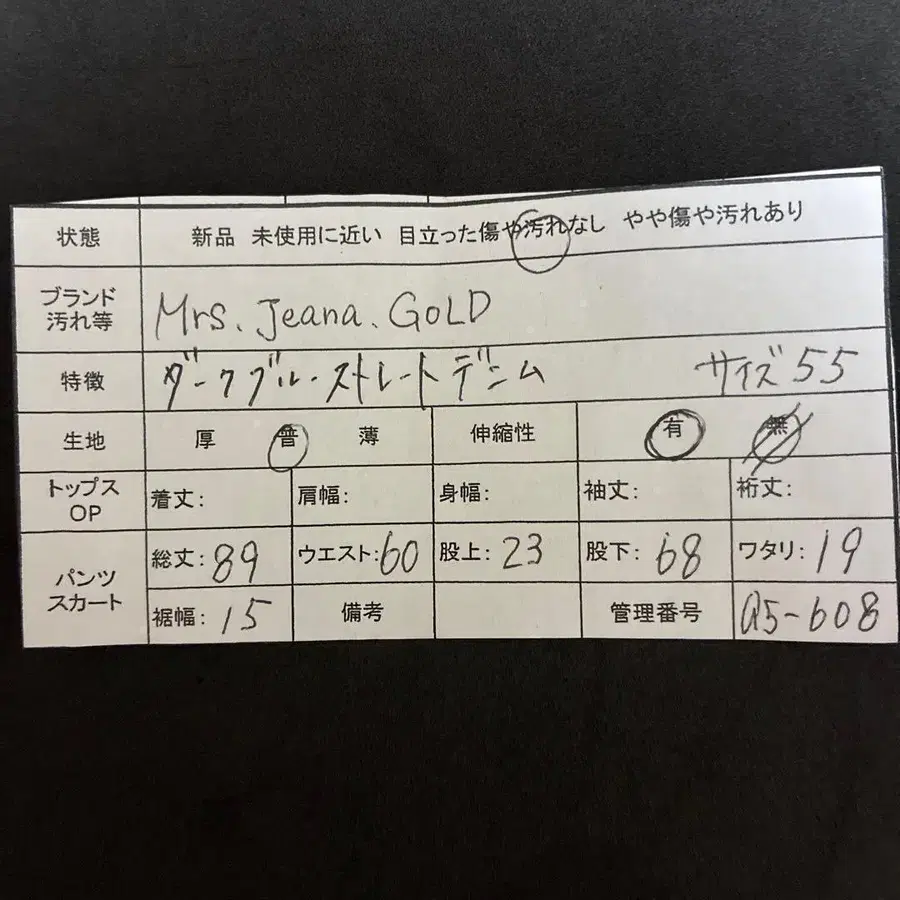 状態 新品 未使用に近い 目立った傷や汚れなし やや傷や汚れあり
ブランド
汚れ等 Mrs. Jeana. GOLD
特徴 ダークブルー・ストレートデニム サイズ55
生地 厚 普 薄 伸縮性 有 無
トップス
OP 着丈: 肩幅: 身幅: 袖丈: 裄丈:
パンツ
スカート 総丈: 89 ウエスト: 60 股上: 23 股下: 68 ワタリ: 19
裾幅: 15 備考 管理番号 a5-608